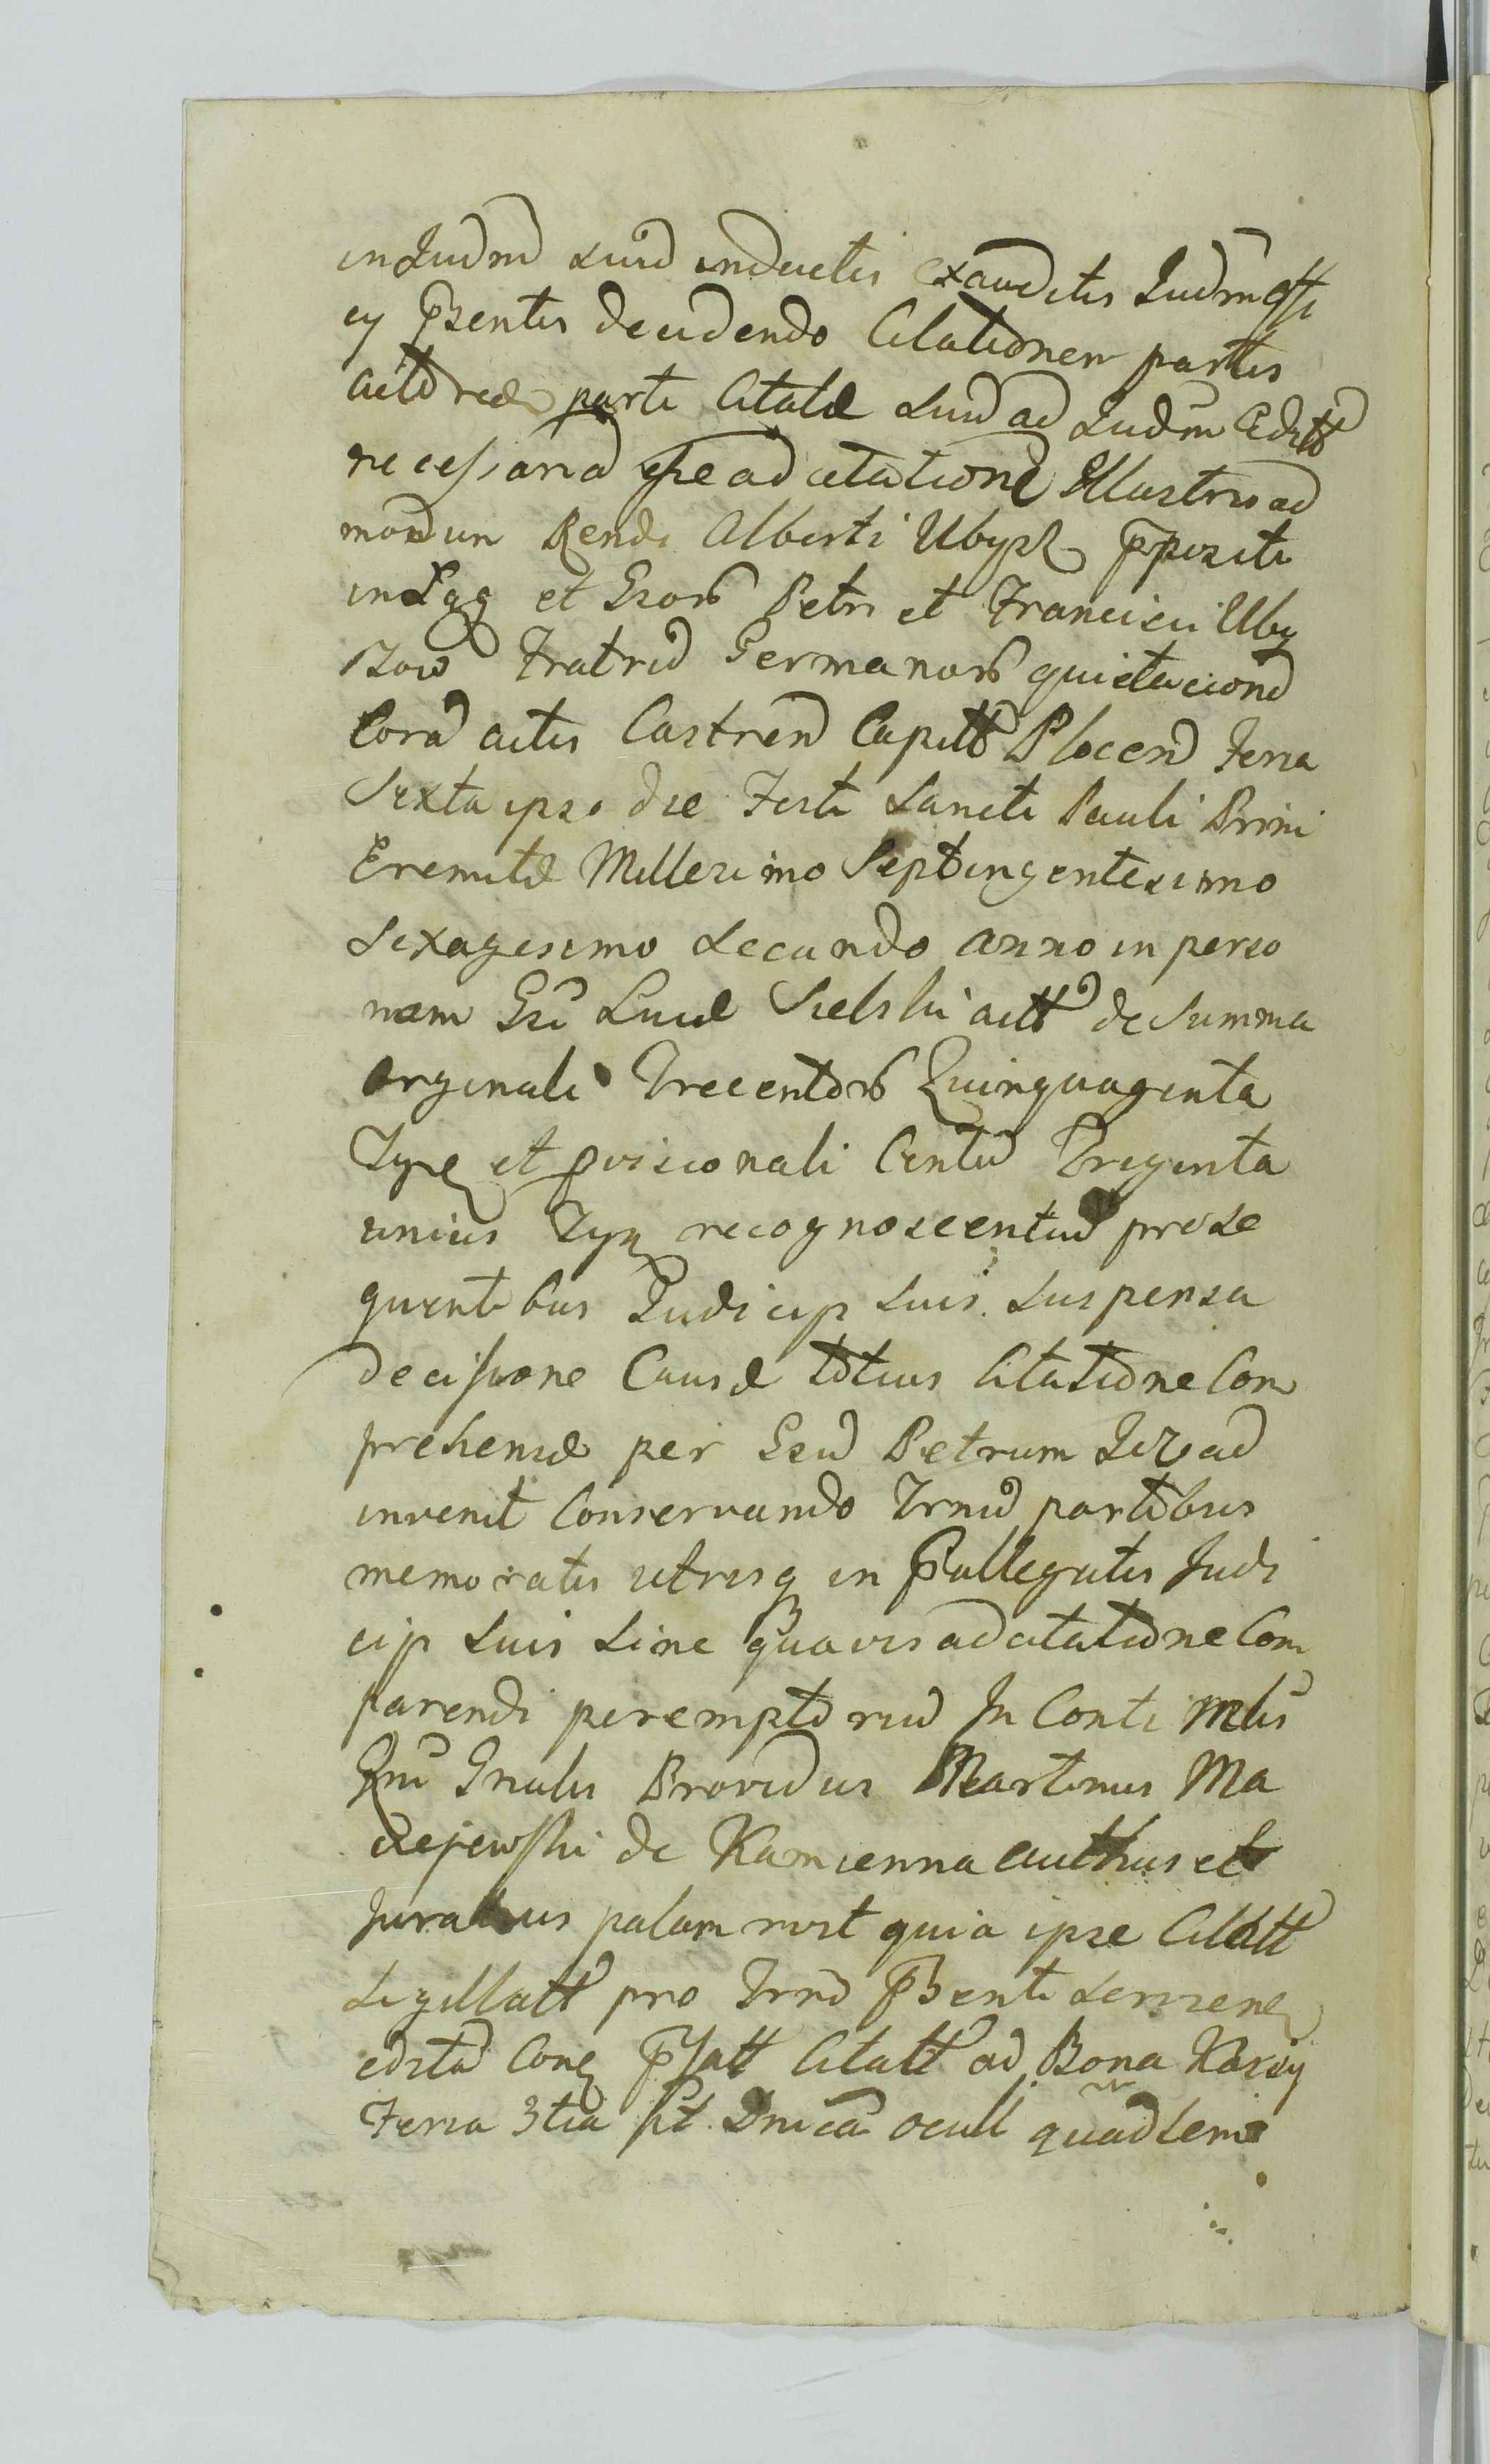 in Judm suu inductis exauditis Judm Offi
cy prsentis decidendo Citationem partis
actoreae parti Citatae suu ad Judm Editt
necessaria esse ad citatione Illustris ad
modum Rendi Alberti Ubysz ppositi
in et Gsorum Petri et Francisci Uby
szow Fratru Germanorum quietacione
Cora actis Castren Capitt Plocen Feria
Sexta ipso die Festi Sancti Pauli Primi
Eremitae Millesimo Septingentesimo
Sexagesimo Secundo anno in perso
nam Gsi Lucae Sielski actt de Summa
orginali Trecentorum Quinquaginta
Tyn et provisionali Centu Triginta
unius Tyn recognoscentiu prose
quentibus Judicijs suis suspensa
decissione Causae totius Citatione Com
prehensae per Gsu Petrum ad
invenit Conservando Trnu partibus
memoratis utrisq in prallegatis Judi
cijs suis sine quavis adcitatione Com
parendi peremptoriu In Conti Mlis
Rni Gnalis Providus Martinus Ma
ciejewski de Kamienna authus et
Juratus palam rvit quia ipse Citatt
Sigillatt pro Trno prsenti
edita Cone pssatt Citatt ad Bona
Feria 3tia pt Dnica Oculi quadlem